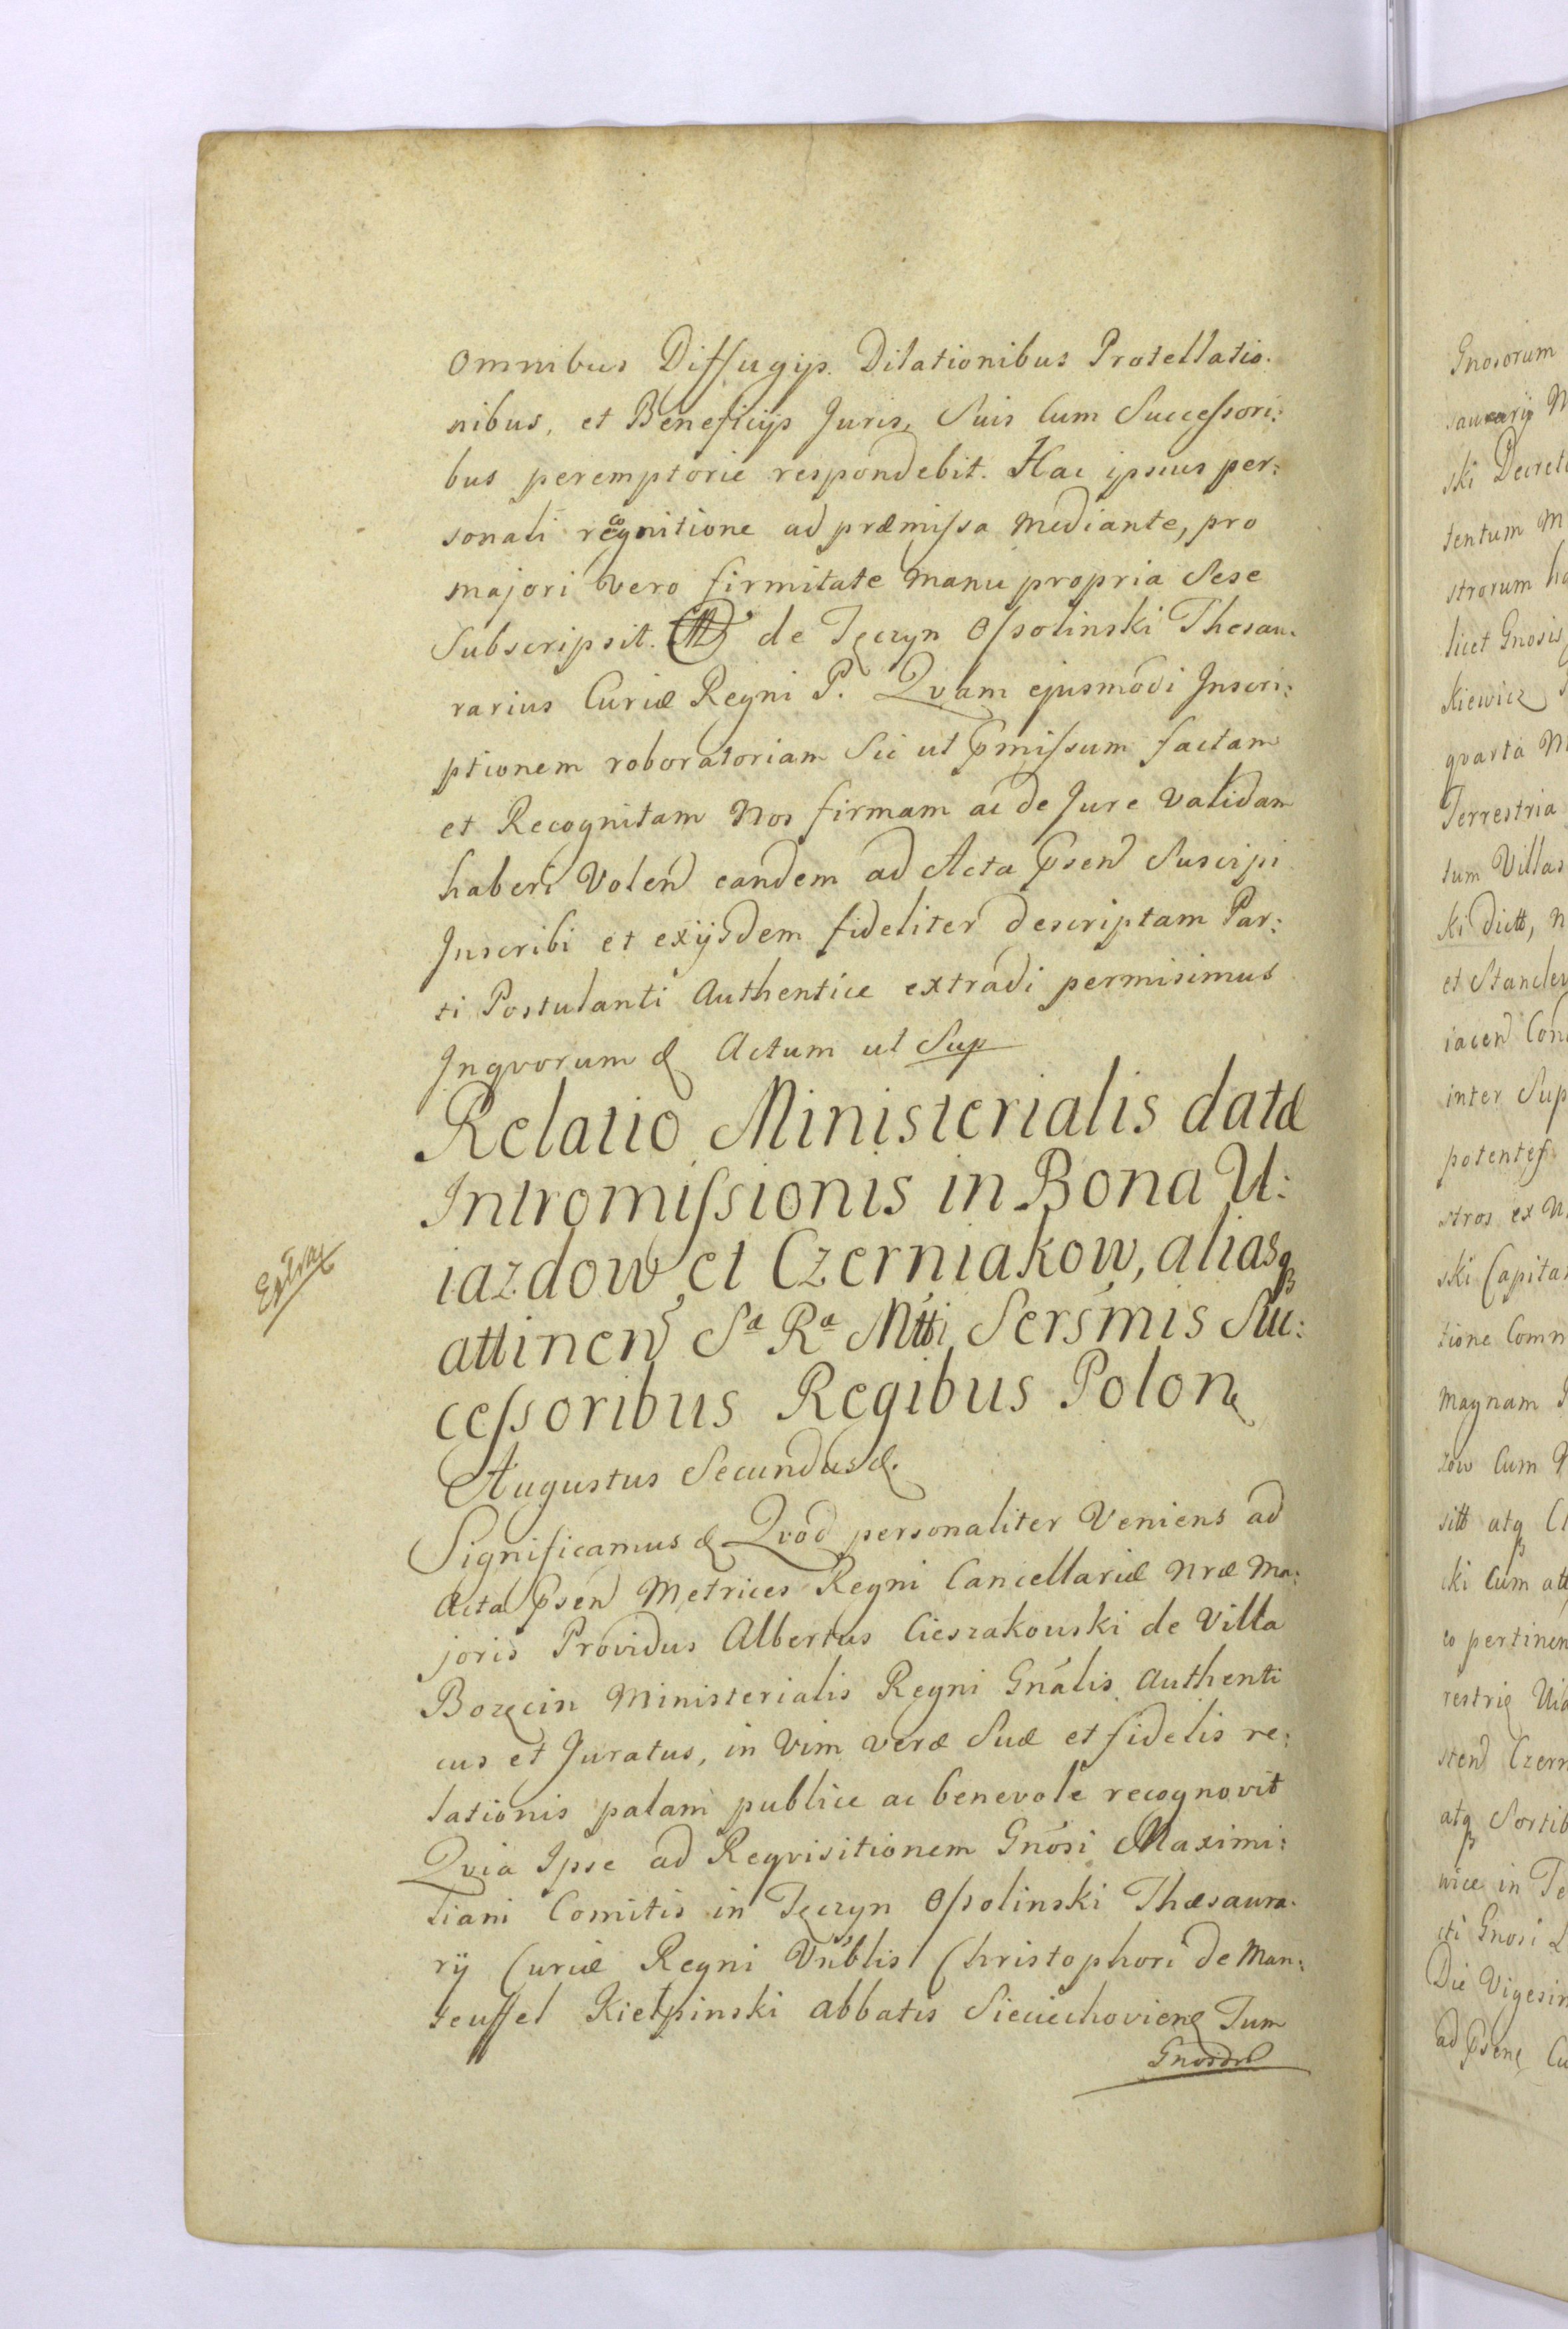 omnibus Diffugijs. Dilationibus Protellatio.
nibus, et Beneficijs Juris, Suis Cum Successori:
bus peremptorie respondebit. Hac ipsius per:
sonali recognitione ad præmissa mediante, pro
majori vero firmitate manu propria Sese
Subscripsit. de Tęczyn Ossolinski Thesau.
rarius Curiæ Regni P. Qvam ejusmodi Inscri:
ptionem roboratoriam Sic ut pmissum factam
et Recognitam Nos firmam ac de Jure Validam
haberi Volen eandem ad Acta psen Suscipi
Inscribi et exijsdem fideliter descriptam Par:
ti Postulanti Authentice extradi permisimus
Inqvorum & Actum ut Sup
Relatio Ministerialis datæ
Intromissionis in Bona U:
iazdow et Czerniakow, aliasq
attinen Sa Ra Mtti Sersmis Suc:
cessoribus Regibus Polon
Augustus Secundus &.
Significamus & Qvod personaliter Veniens ad
Acta psen Metrices Regni Cancellariæ nræ Ma:
joris Providus Albertus Cieszakouski de Villa
Bozęcin Ministerialis Regni Gnalis Authenti
cus et Juratus, in Vim veræ Suæ et fidelis re:
lationis palam publice ac benevole recognovit
Qvia Ipse ad Reqvisitionem Gnosi Maximi:
liani Comitis in Tęczyn Ossolinski Thæsaura.
rij Curiæ Regni Vnblis Christophori de Man:
teuffel Kiełpinski abbatis Sieciechovien Tum
Extrax
Gnosorum
ski Decret
tentum M
strorum
licet Gnosis
kiewicz
qvarta
Terrestria
tum Villas
ki dictt,
iacen Con
inter Sup
potentes
stros ex
ski Capita
tione Comm
magnam
zow Cum
sitt atq
ski Cum att
eo pertinen
sten Czern
atq Sortib
wice in Te
cti Gnosi
Die Vigesim
ad psen Cu